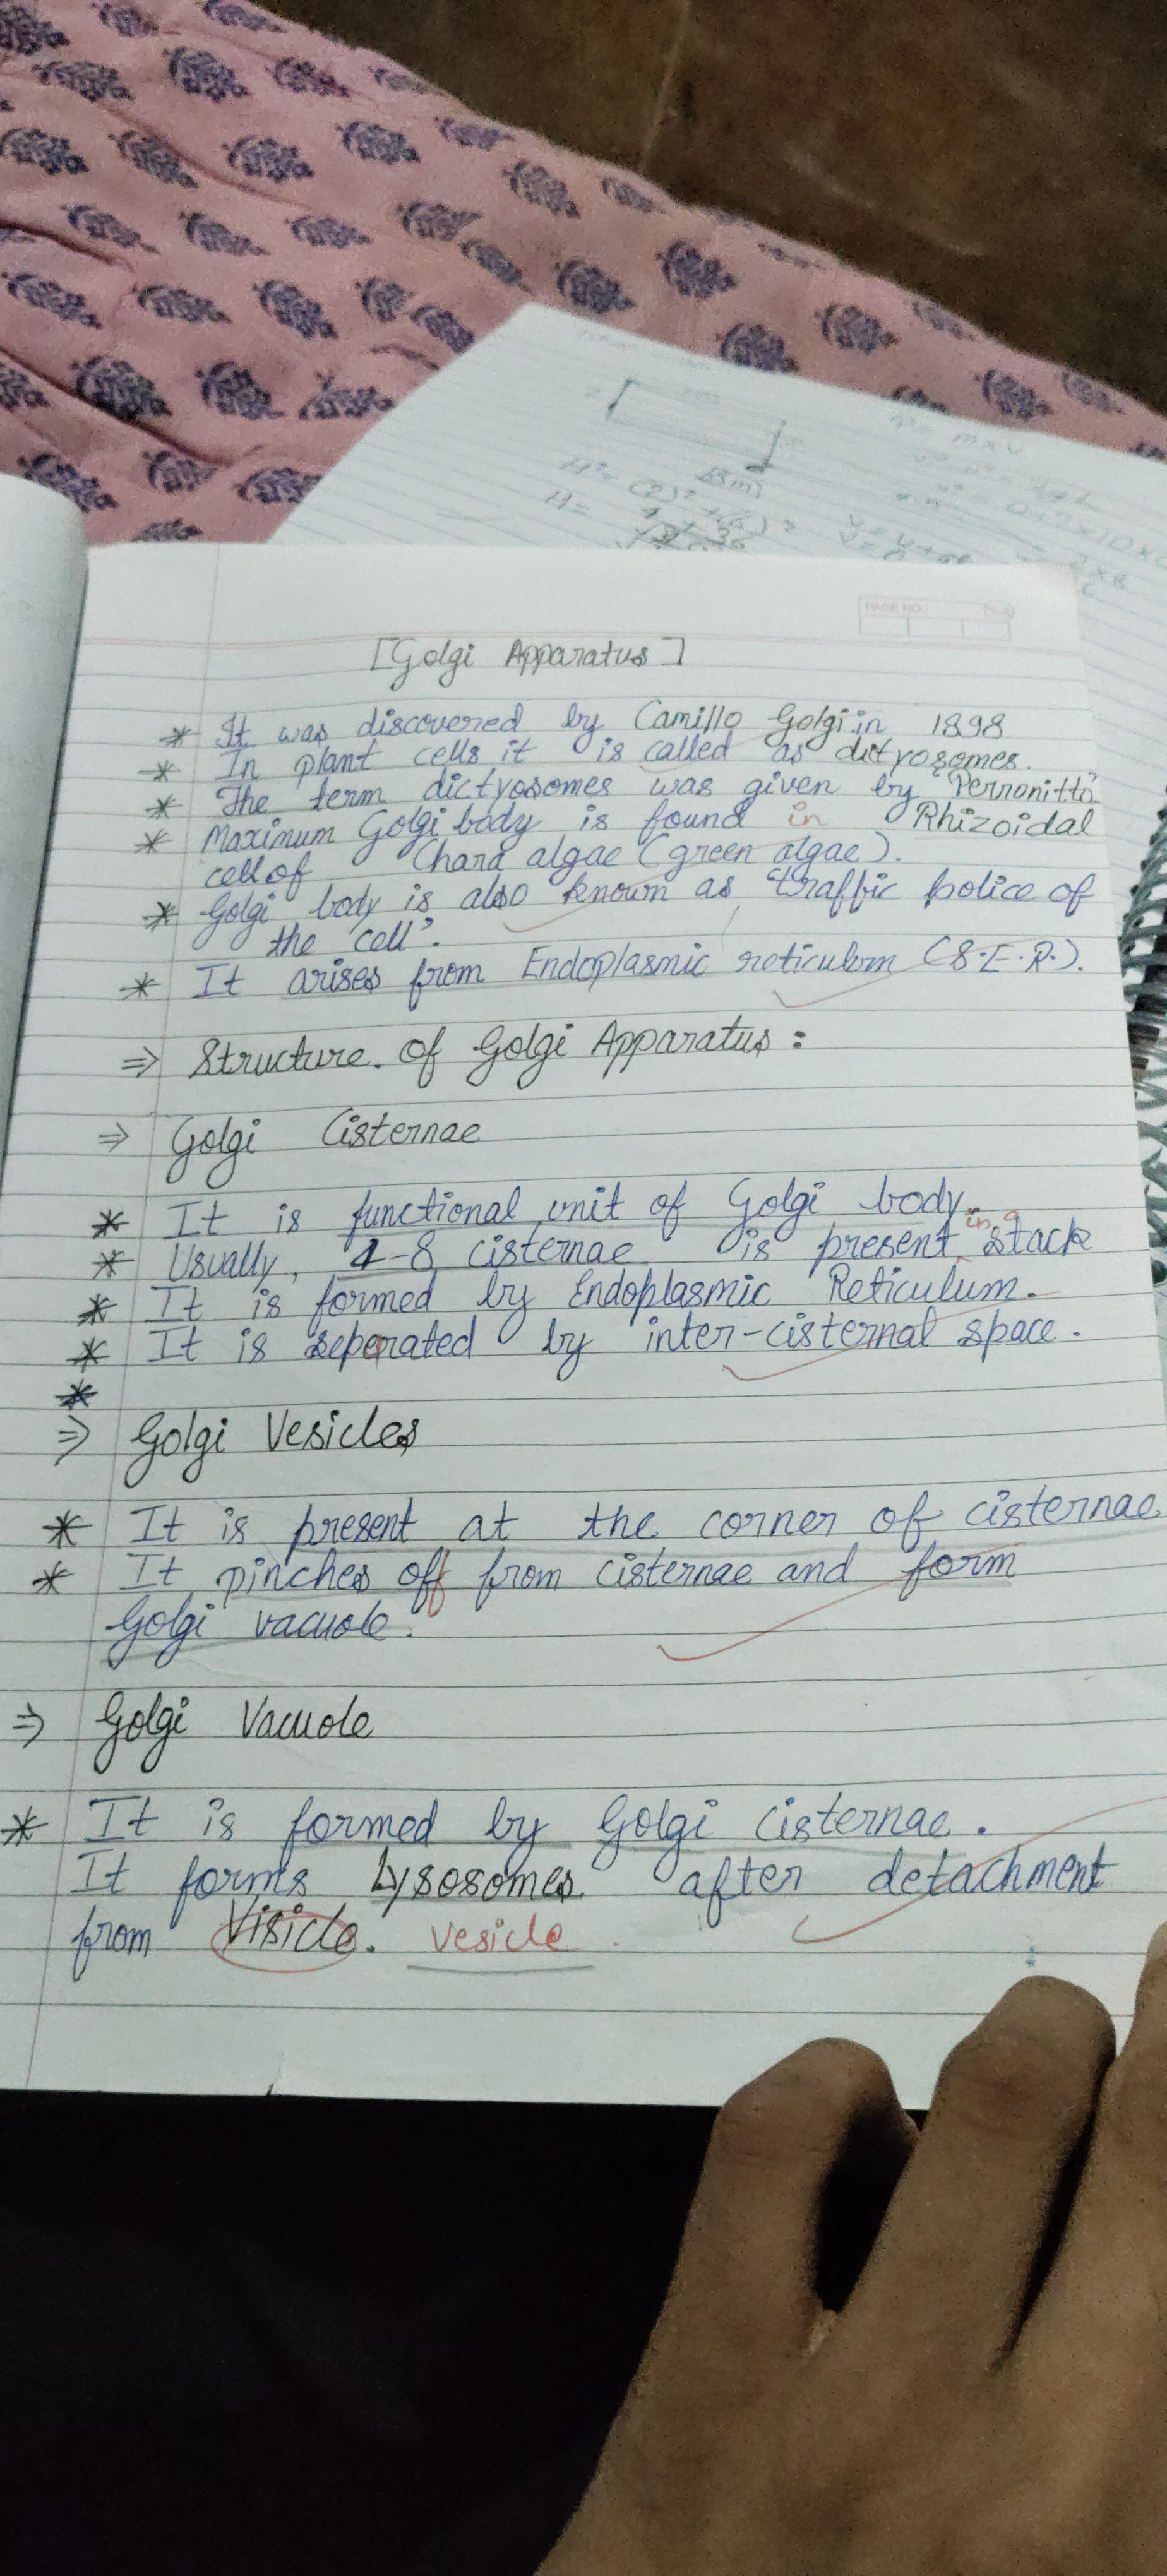 H²= (2)²
H=
m x v
PAGE NO.:
[Golgi Apparatus]
* It was discovered by Camillo Golgi in 1898
* In plant cells it is called as dictyosomes.
* The term dictyosomes was given by Perronitto
* Maximum Golgi body is found in Rhizoidal
cell of Chara algae (green algae).
* Golgi body is also known as "traffic police of
the cell".
* It arises from Endoplasmic reticulum (S.E.R.).
⇒ Structure of Golgi Apparatus:
⇒ Golgi Cisternae
* It is functional unit of Golgi body.
* Usually, 4-8 cisternae is present in a stack
* It is formed by Endoplasmic Reticulum.
* It is seperated by inter-cisternal space.
*
⇒ Golgi Vesicles
* It is present at the corner of cisternae
* It pinches off from cisternae and form
Golgi vacuole.
⇒ Golgi Vacuole
* It is formed by Golgi cisternae.
It forms Lysosomes after detachment
from Visicle. vesicle